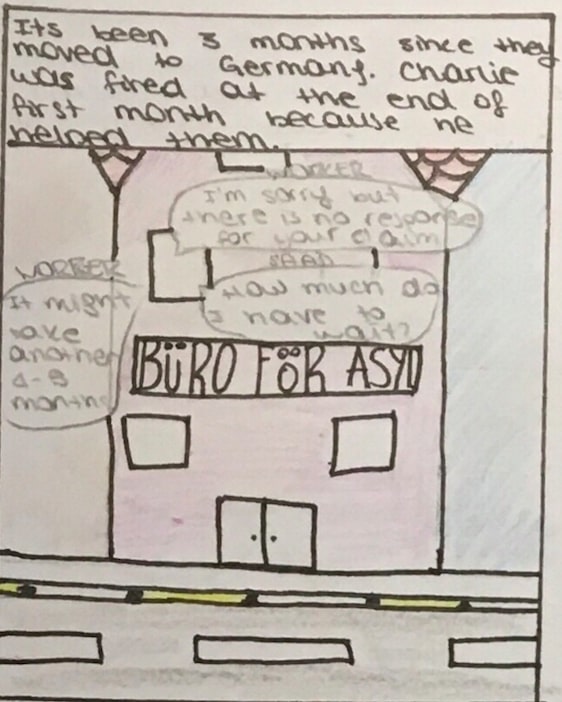 Its been 3 months since they
moved to Germany. Charlie
was fired at the end of
first month because he
helped them.
WORKER
I'm sorry but
there is no response
for your claim
SAAD
How much do
I have to
wait?
WORKER
It might
take
another
4-5
months
BÜRO FÖR ASYL